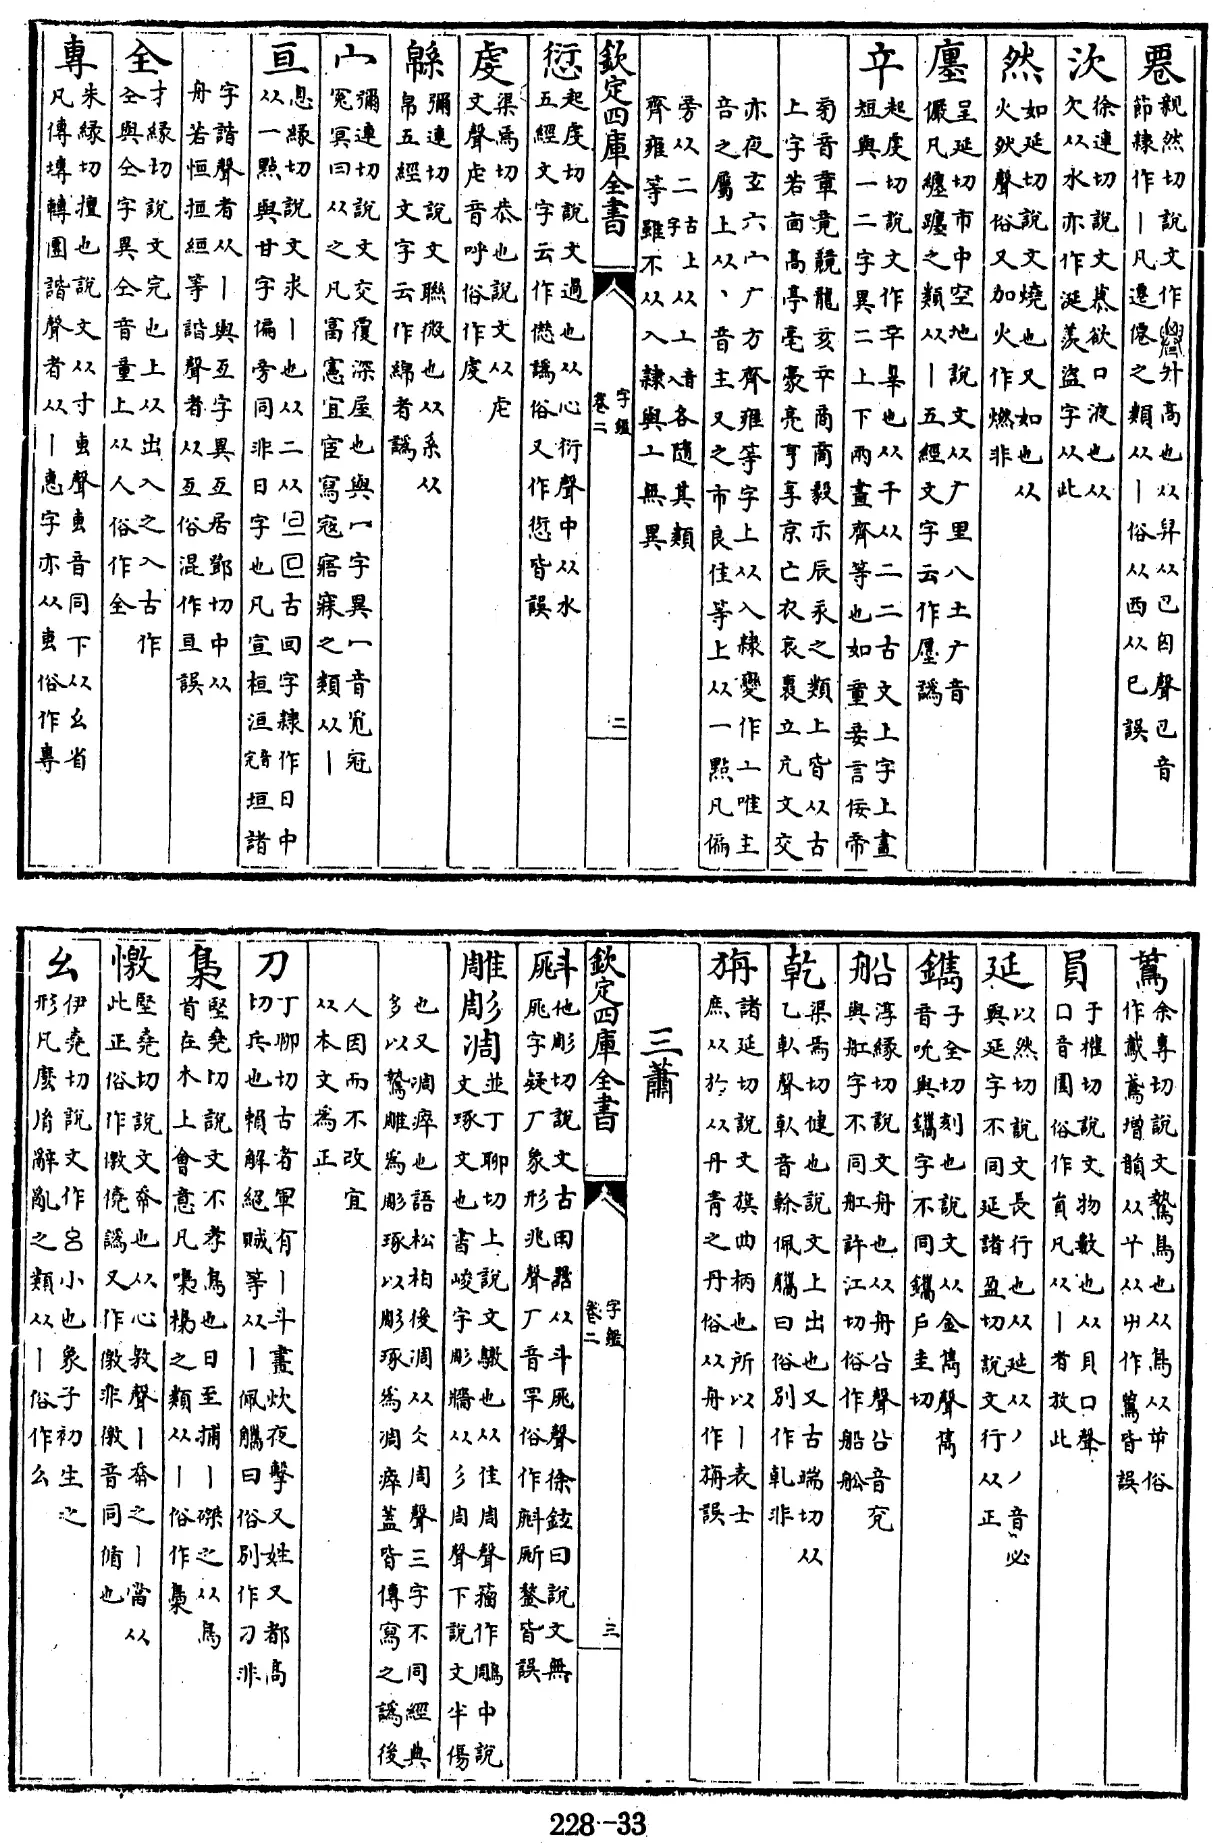 䙴親然切說文作𢍱升高也从舁从㔾囟聲㔾音
節隸作丨凡遷僊之類从丨俗从西从巳誤
㳄徐連切說文慕欲口液也从
欠从水亦作涎羨盜字从此
然如延切說文燒也又如也从
火肰聲俗又加火作燃非
廛呈延切市中空地說文从广里八土广音
儼凡纏躔之類从丨五經文字云作㕓譌
䇂起虔切說文作䇂辠也从干从二二古文上字上畫
短與一二字異二上下兩畫齊等也如童妾言佞帝
菊音章竟競龍亥䇂商啇毅示辰永之類上皆从古
上字若面高亭亳豪亮亨享京亡衣哀裏立亢文交
亦夜玄六宀广方齊雍等字上从入隸變作亠唯主
音之屬上从丶音主又之市良隹等上从一點凡偏
旁从二古字上从亠入音各隨其類
齊雍等雖不从入隸與亠無異
欽定四庫全書
字鑑
卷二
二
愆起虔切說文過也从心衍聲中从水
五經文字云作僽譌俗又作愆皆誤
虔渠焉切恭也說文从虍
文聲虍音呼俗作虔
緜彌連切說文聯微也从系从
帛五經文字云作綿者譌
宀彌連切說文交覆深屋也與冖字異冖音覓冠
冤冥曰从之凡富憲宜宦寫寇寤寐之類从丨
亘息緣切說文求丨也从二从囘囘古回字隸作日中
从一點與甘字偏旁同非日字也凡宣桓洹䆠垣諸
字諧聲者从丨與互字異互居鄧切中从
舟若恒搄絙等諧聲者从互俗混作亘誤
全才緣切說文完也上从出入之入古作
仝與仝字異仝音童上从人俗作全
專朱緣切擅也說文从寸叀聲叀音同下从幺省
凡傳塼轉團諧聲者从丨惠字亦从叀俗作專
鳶余專切說文鷙鳥也从鳥从屰俗
作䳒鳶增韻从丫从屮作鳶皆誤
員于權切說文物數也从貝口聲
口音圓俗作貟凡从丨者放此
延以然切說文長行也从㢟从丿丿音必
與延字不同延諸盈切說文行从正
鐫子全切刻也說文从金雋聲雋
音吮與鑴字不同鑴戶圭切
船淳緣切說文舟也从舟㕣聲㕣音兗
與舡字不同舡許江切俗作船舩
乾渠焉切健也說文上出也又古端切从
乙倝聲倝音榦佩觿曰俗別作乹非
旃諸延切說文旗曲柄也所以丨表士
庶从㫃从丹青之丹俗从舟作旃誤
三蕭
欽定四庫全書
字鑑
卷二
三
㪗他彫切說文古田器从斗厞聲徐鉉曰說文無
厞字疑厂象形兆聲厂音罕俗作㪗斲鏊皆誤
雕彫凋並丁聊切上說文鷻也从隹周聲籀作鵰中說
文琢文也書峻宇彫牆从彡周聲下說文半傷
也又凋瘁也語松柏後凋从仌周聲三字不同經典
多以鷙雕為彫琢以彫琢為凋瘁蓋皆傳寫之譌後
人因而不改宜
从本文為正
刀丁聊切古者軍有丨斗晝炊夜擊又姓又都高
切兵也賴解絕賊等从丨佩觿曰俗別作刁非
梟堅堯切說文不孝鳥也日至捕丨磔之从鳥
首在木上會意凡噪㯺之類从丨俗作㯱
憿堅堯切說文㚔也从心敫聲丨㚔之丨當从
此正俗作儌僥譌又作徼非徼音同循也
幺伊堯切說文作𠫓小也象子初生之
形凡麼胤辭亂之類从丨俗作么
228-33